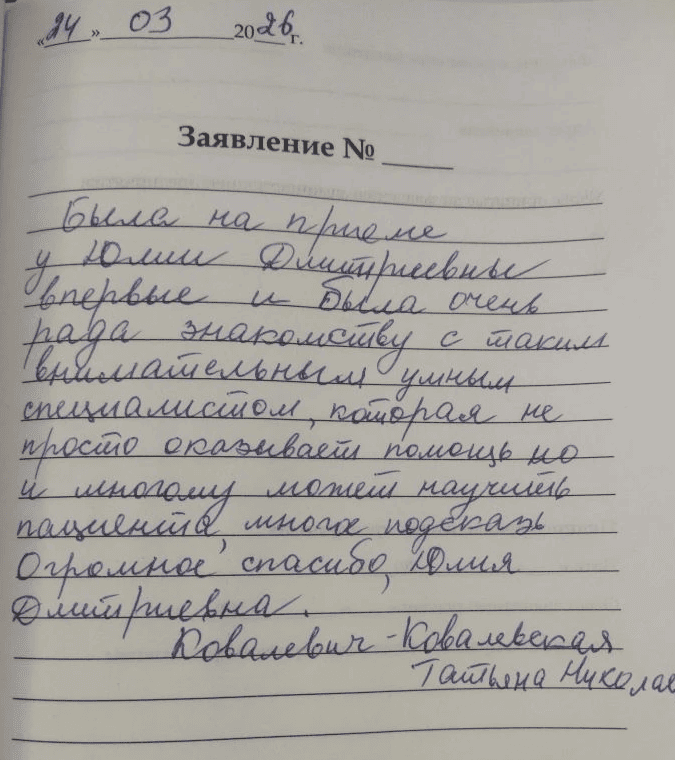 «24» 03 2026 г.
Заявление № ____
Была на приеме
у Юлии Дмитриевны
впервые и была очень
рада знакомству с таким
внимательным умным
специалистом, которая не
просто оказывает помощь но
и многому может научить
пациента, многое подсказь
Огромное спасибо, Юлия
Дмитриевна.
Ковалевич-Ковалевская
Татьяна Николае